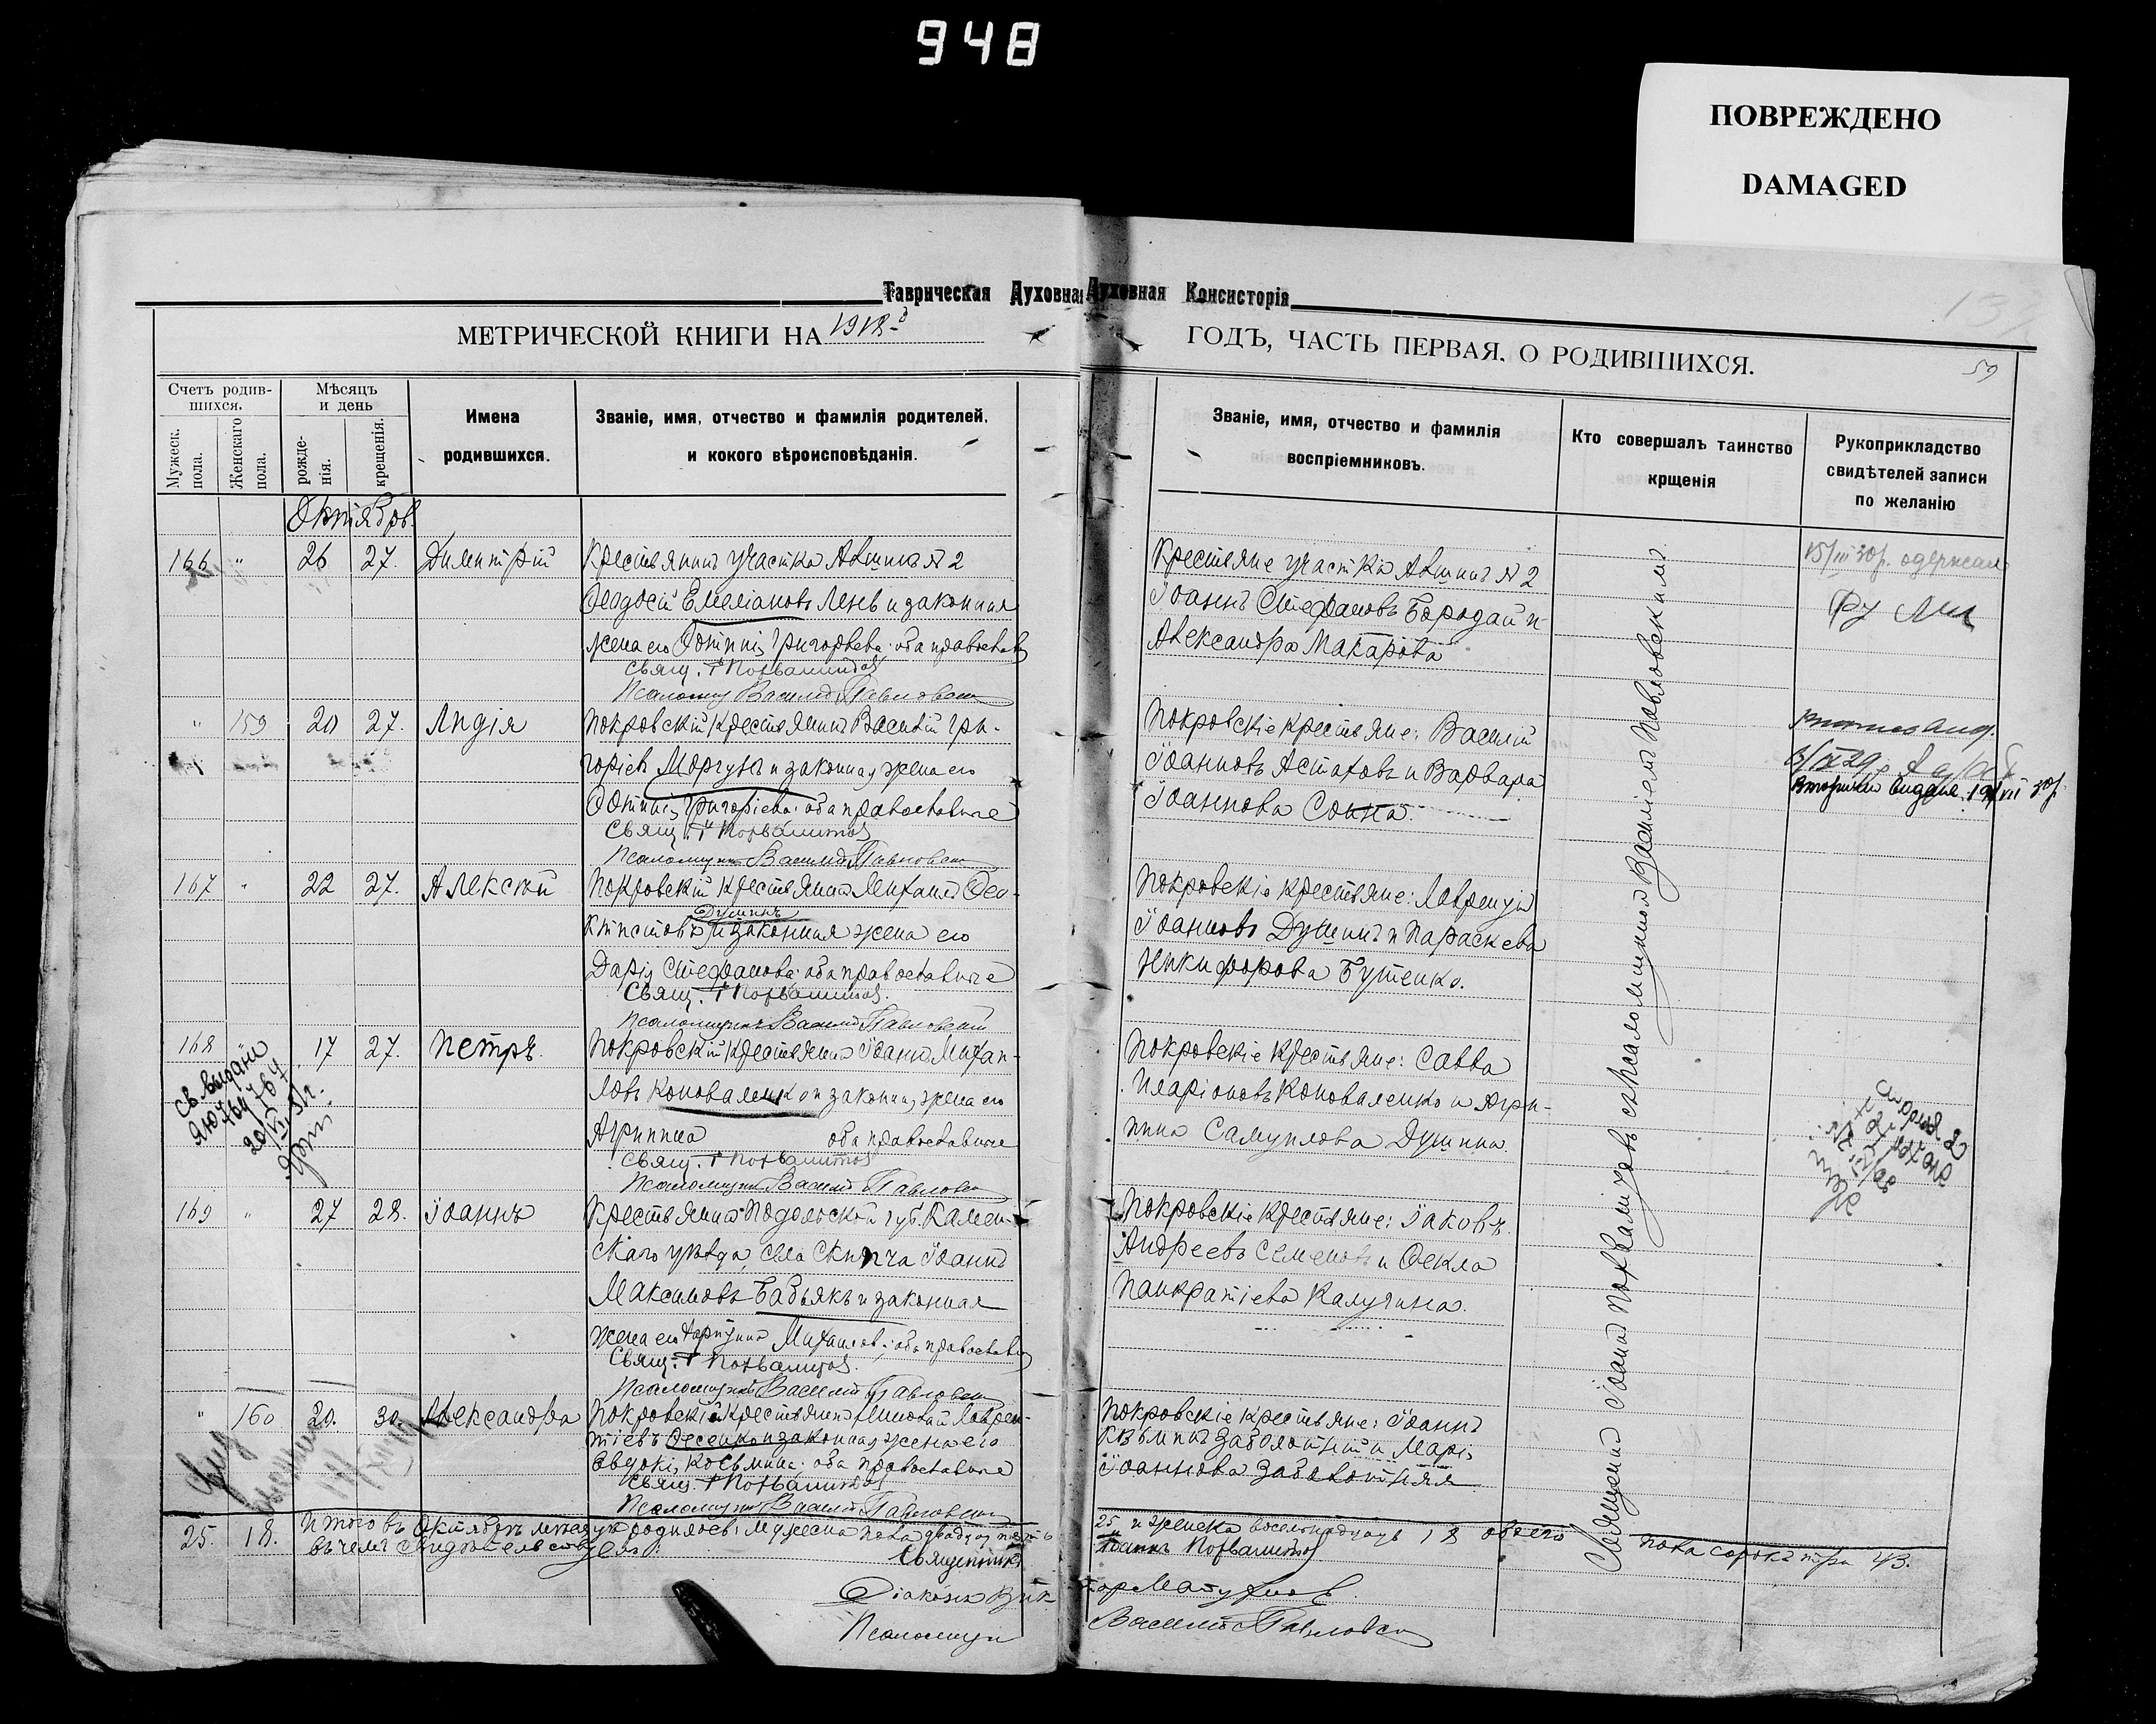 948
ПОВРЕЖДЕНО
DAMAGED
Таврическая Духовная
Духовная Консисторія
МЕТРИЧЕСКОЙ КНИГИ НА 1918-й
ГОДЪ, ЧАСТЬ ПЕРВАЯ, О РОДИВШИХСЯ.
59
Счетъ родив-
шихся.
Мужеск.
пола.
Женскаго
пола.
Мѣсяцъ
и день
рожде-
нія.
крещенія.
Имена
родившихся.
Званіе, имя, отчество и фамилія родителей,
и кокого вѣроисповѣданія.
Званіе, имя, отчество и фамилія
воспріемниковъ.
Кто совершалъ таинство
крщенія
Рукоприкладство
свидѣтелей записи
по желанію
Октябрь
166 " 26 27. Димитрій
Крестьянинъ участка Авшинъ № 2
Ѳеодосій Емеліановъ Лень и законная
жена его Григорьева: оба православ
Свящ. І Похвалитовъ
Псаломщ Василій Павловскій
Крестьяне участка Авшинъ № 2
Іоаннъ Стефановъ Бородай и
Александра Макарова
15/III 30 р. одержал
" 159 20 27. Лидія
Покровскій крестьянинъ Василій Гри-
горіевъ Моргунъ и законная жена его
Григоріева: оба православные
Свящ. І Похвалитовъ
Псаломщикъ Василій Павловскій
Покровскіе крестьяне: Василій
Іоанновъ Астаховъ и Варвара
Іоаннова Сонна.
видана 30 р.
167 " 22 27. Алексій
Покровскій крестьянинъ Михаилъ Ѳео-
Душинъ
ктистовъ и законная жена его
Дарія Стефанова: оба православные
Свящ. І Похвалитовъ.
Псаломщикъ Василій Павловскій
Покровскіе крестьяне: Лаврентій
Іоанновъ Душинъ и Параскева
Никифорова Бутенко.
168 " 17 27. Петръ.
св. выдано
ЯЮ 764764
20/VI 51 г.
Покровскій крестьянинъ Іоаннъ Михаи-
ловъ Коноваленко и законная жена его
Агриппина оба православные
Свящ. І Похвалитовъ
Псаломщикъ Василій Павловскій
Покровскіе крестьяне: Савва
Иларіоновъ Коноваленко и Агри-
пина Самуилова Душина.
169 " 27 28. Іоаннъ
Крестьянинъ Подольской губ. Камен
скаго уѣзда, села Скипча Іоаннъ
Максимовъ Бабьякъ и законная
жена его Михаилова: оба православ
Свящ. І Похвалитовъ.
Псаломщикъ Василій Павловскій
Покровскіе крестьяне: Іаковъ
Андреевъ Семеновъ и Ѳекла
Панкратіева Калугина.
" 160 20. 30. Александра
Покровскій крестьянинъ Николай Лаврен-
тіевъ Фесенко и законная жена его
Евдокія Косьмина: оба православные
Свящ. І Похвалитовъ
Псаломщикъ Василій Павловскій
Покровскіе крестьяне: Іоаннъ
Кузьминъ Заболотній и Марія
Іоаннова Заболотняя
Священникъ Іоаннъ Похвалитовъ съ псаломщикомъ Василіемъ Павловскимъ.
25. 18. Итого въ Октябрѣ мѣсяцѣ родилось: мужеска пола двадцать пять
25 и женска восемнадцать 18 обоего
пола сорокъ три 43.
въ чемъ свидѣтельствуемъ:
Священникъ Іоаннъ Похвалитовъ
Діаконъ Викторъ
Псаломщикъ Василій Павловскій